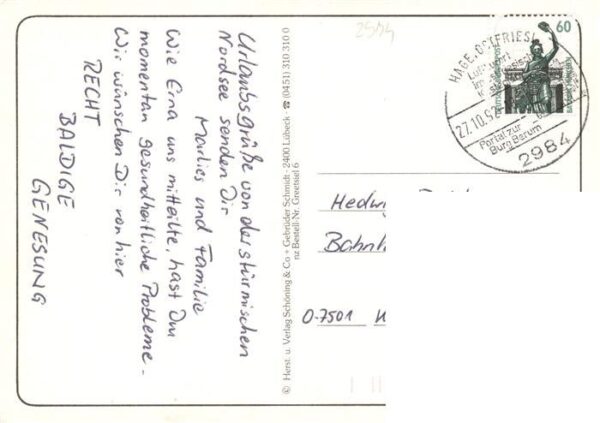 2544
Urlaubsgrüße von der stürmischen
Nordsee senden Dir
Marlies und Familie
Wie Erna uns mitteilte, hast Du
momentan gesundheitliche Probleme.
Wir wünschen Dir von hier
RECHT
BALDIGE
GENESUNG
© Herst. u. Verlag Schöning & Co + Gebrüder Schmidt · 2400 Lübeck · ☎ (0451) 310 310 0
nz Bestell-Nr. Greetsiel 6
HAGE, OSTFRIESL
Luftkurort
27.10.92
Portal zur
Burg Berum
2984
60
Hedwi
Bahnh
O-7501